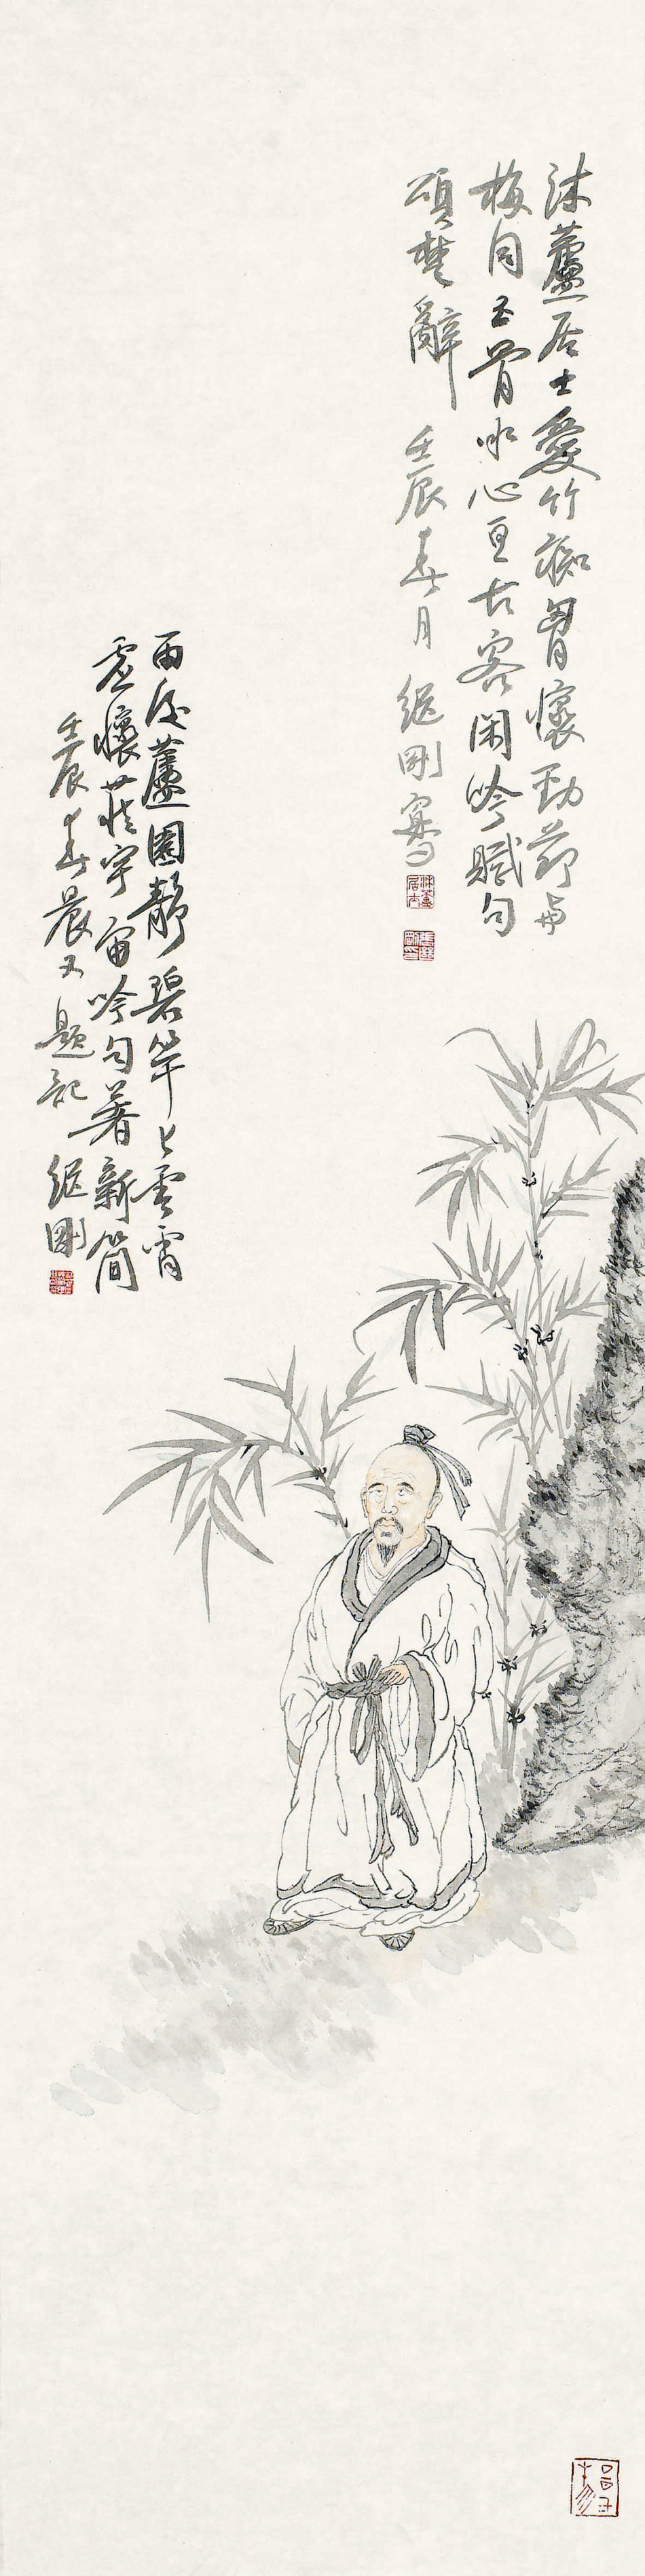 沐蘆居士愛竹痴胷懷勁節与
梅同玉骨冰心亘古客閑吟賦句
頌楚辭 壬辰春月 繼剛寫
雨後蘆園靜碧竿上雲霄
虛懷藏宇宙吟句著新簡
壬辰春晨又題記 繼剛